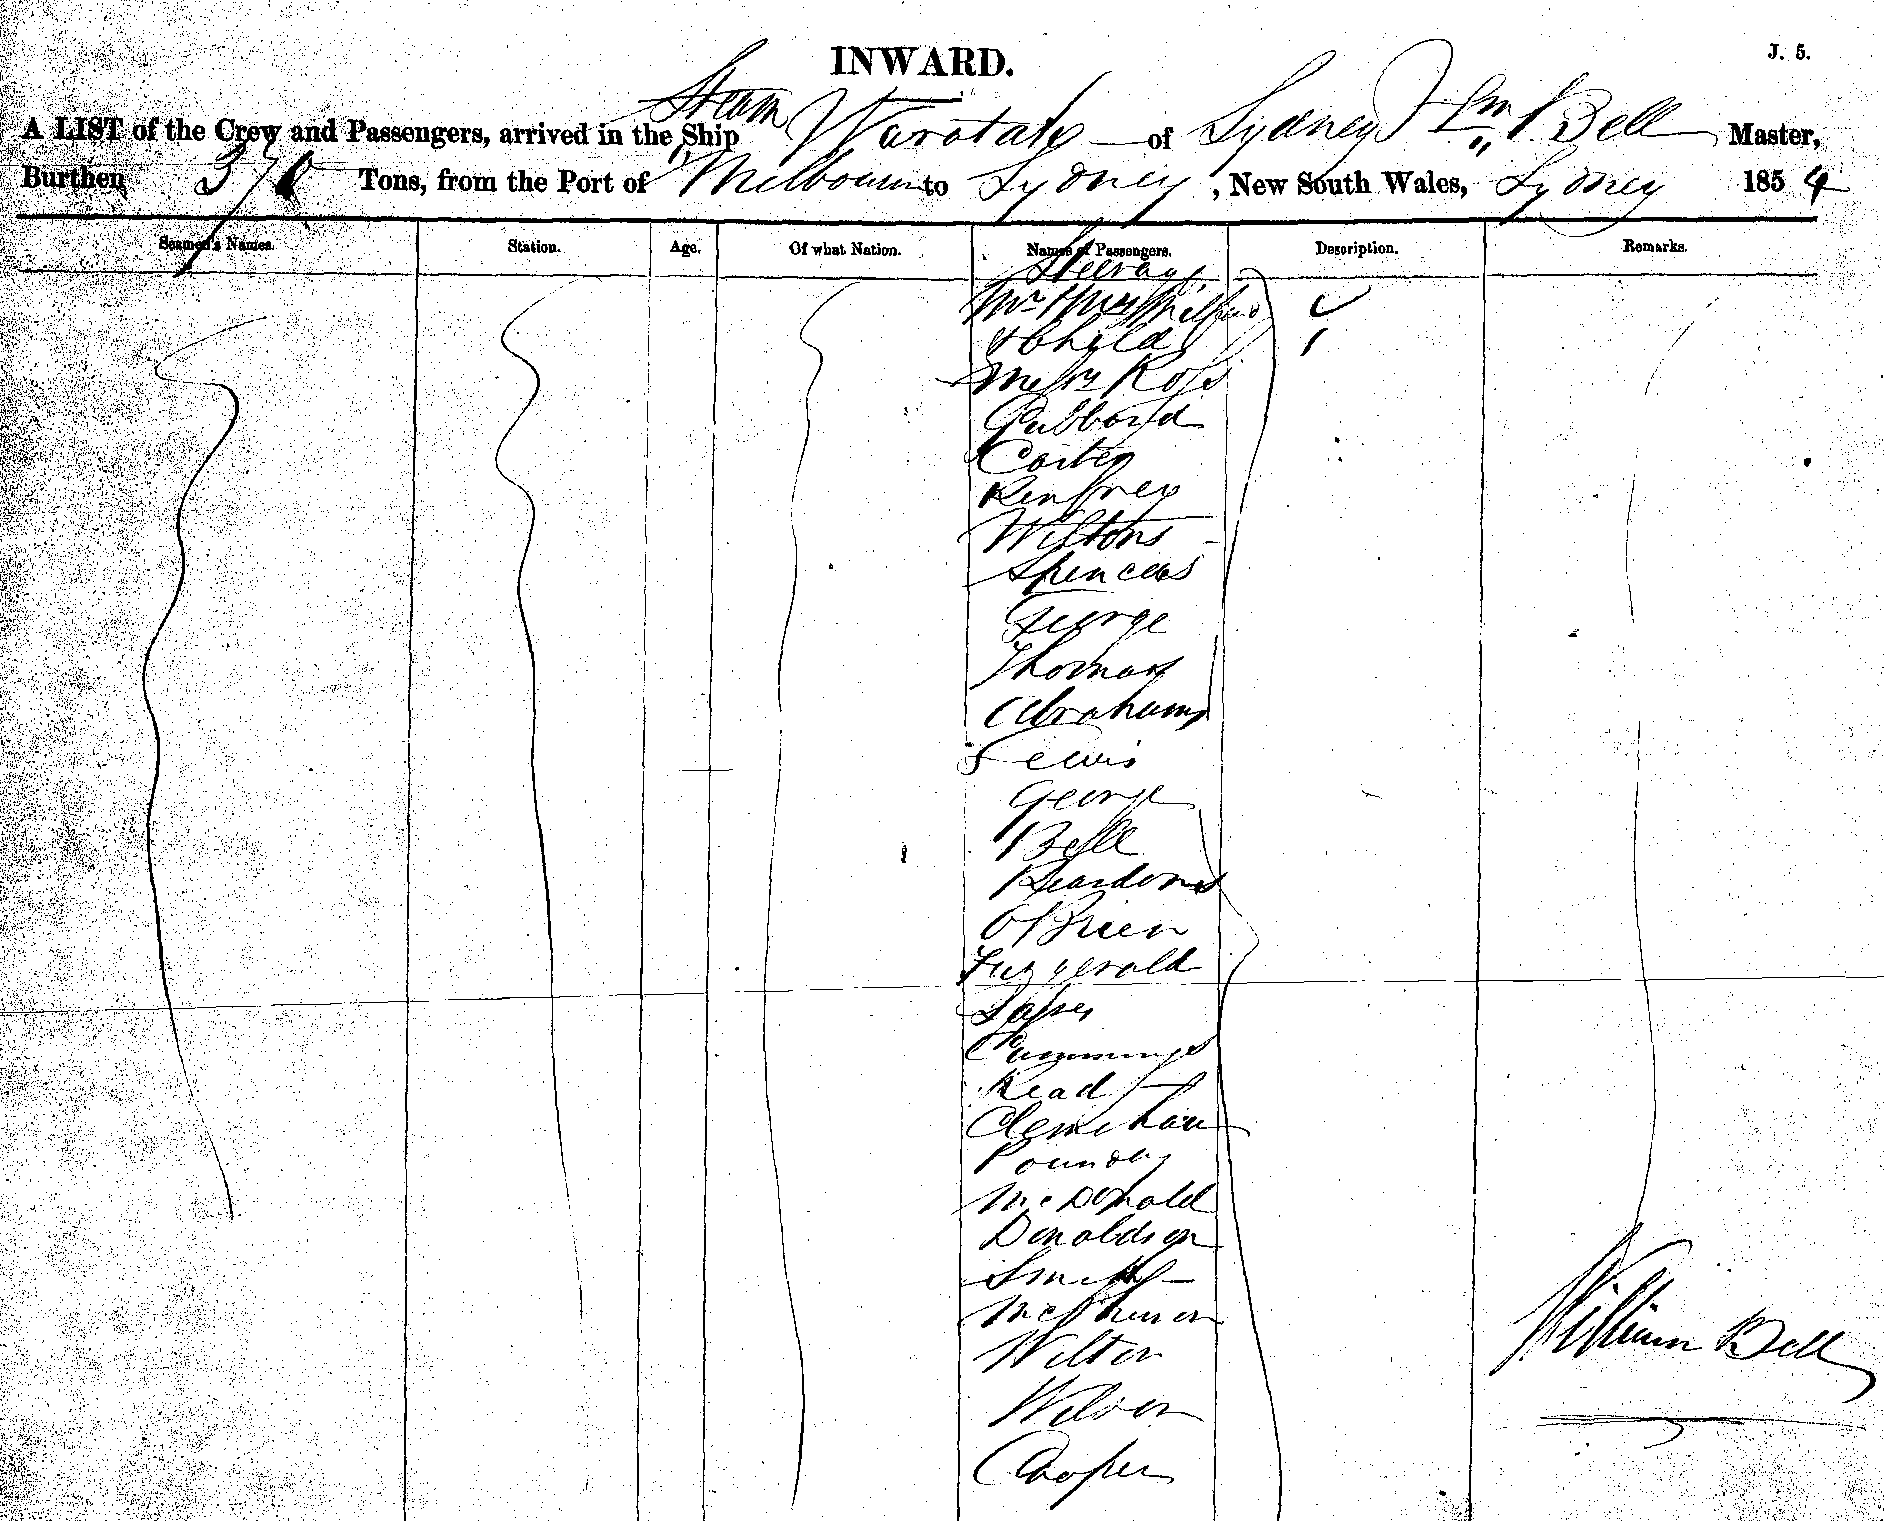 INWARD.
J. 5.
A LIST of the Crew and Passengers, arrived in the Steam Ship Waratah of Sydney Wm Bell Master,
Burthen 370 Tons, from the Port of Melbourne to Sydney, New South Wales, Sydney 1854
Seamen's Names. Station. Age. Of what Nation. Names of Passengers. Description. Remarks.
Steerage
Mr & Mrs
& Child
Messrs Ross
Carter
Renfrey
Wiltons
Spencer
George
Thomas
Abrahams
Lewis
George
Bell
Reardon
O'Brien
Fitzgerald
Cummings
Read
Clenehan
Pounds
McDonald
Donaldson
Smith
Wilton
Wilson
Cooper
William Bell